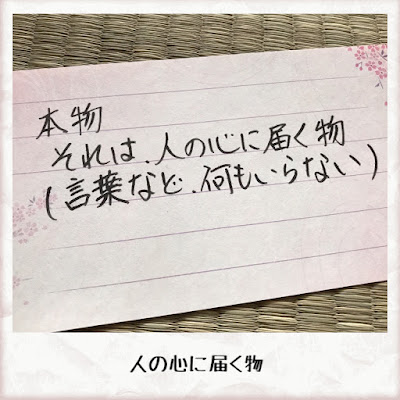 本物
それは、人の心に届く物
(言葉など、何もいらない)
人の心に届く物